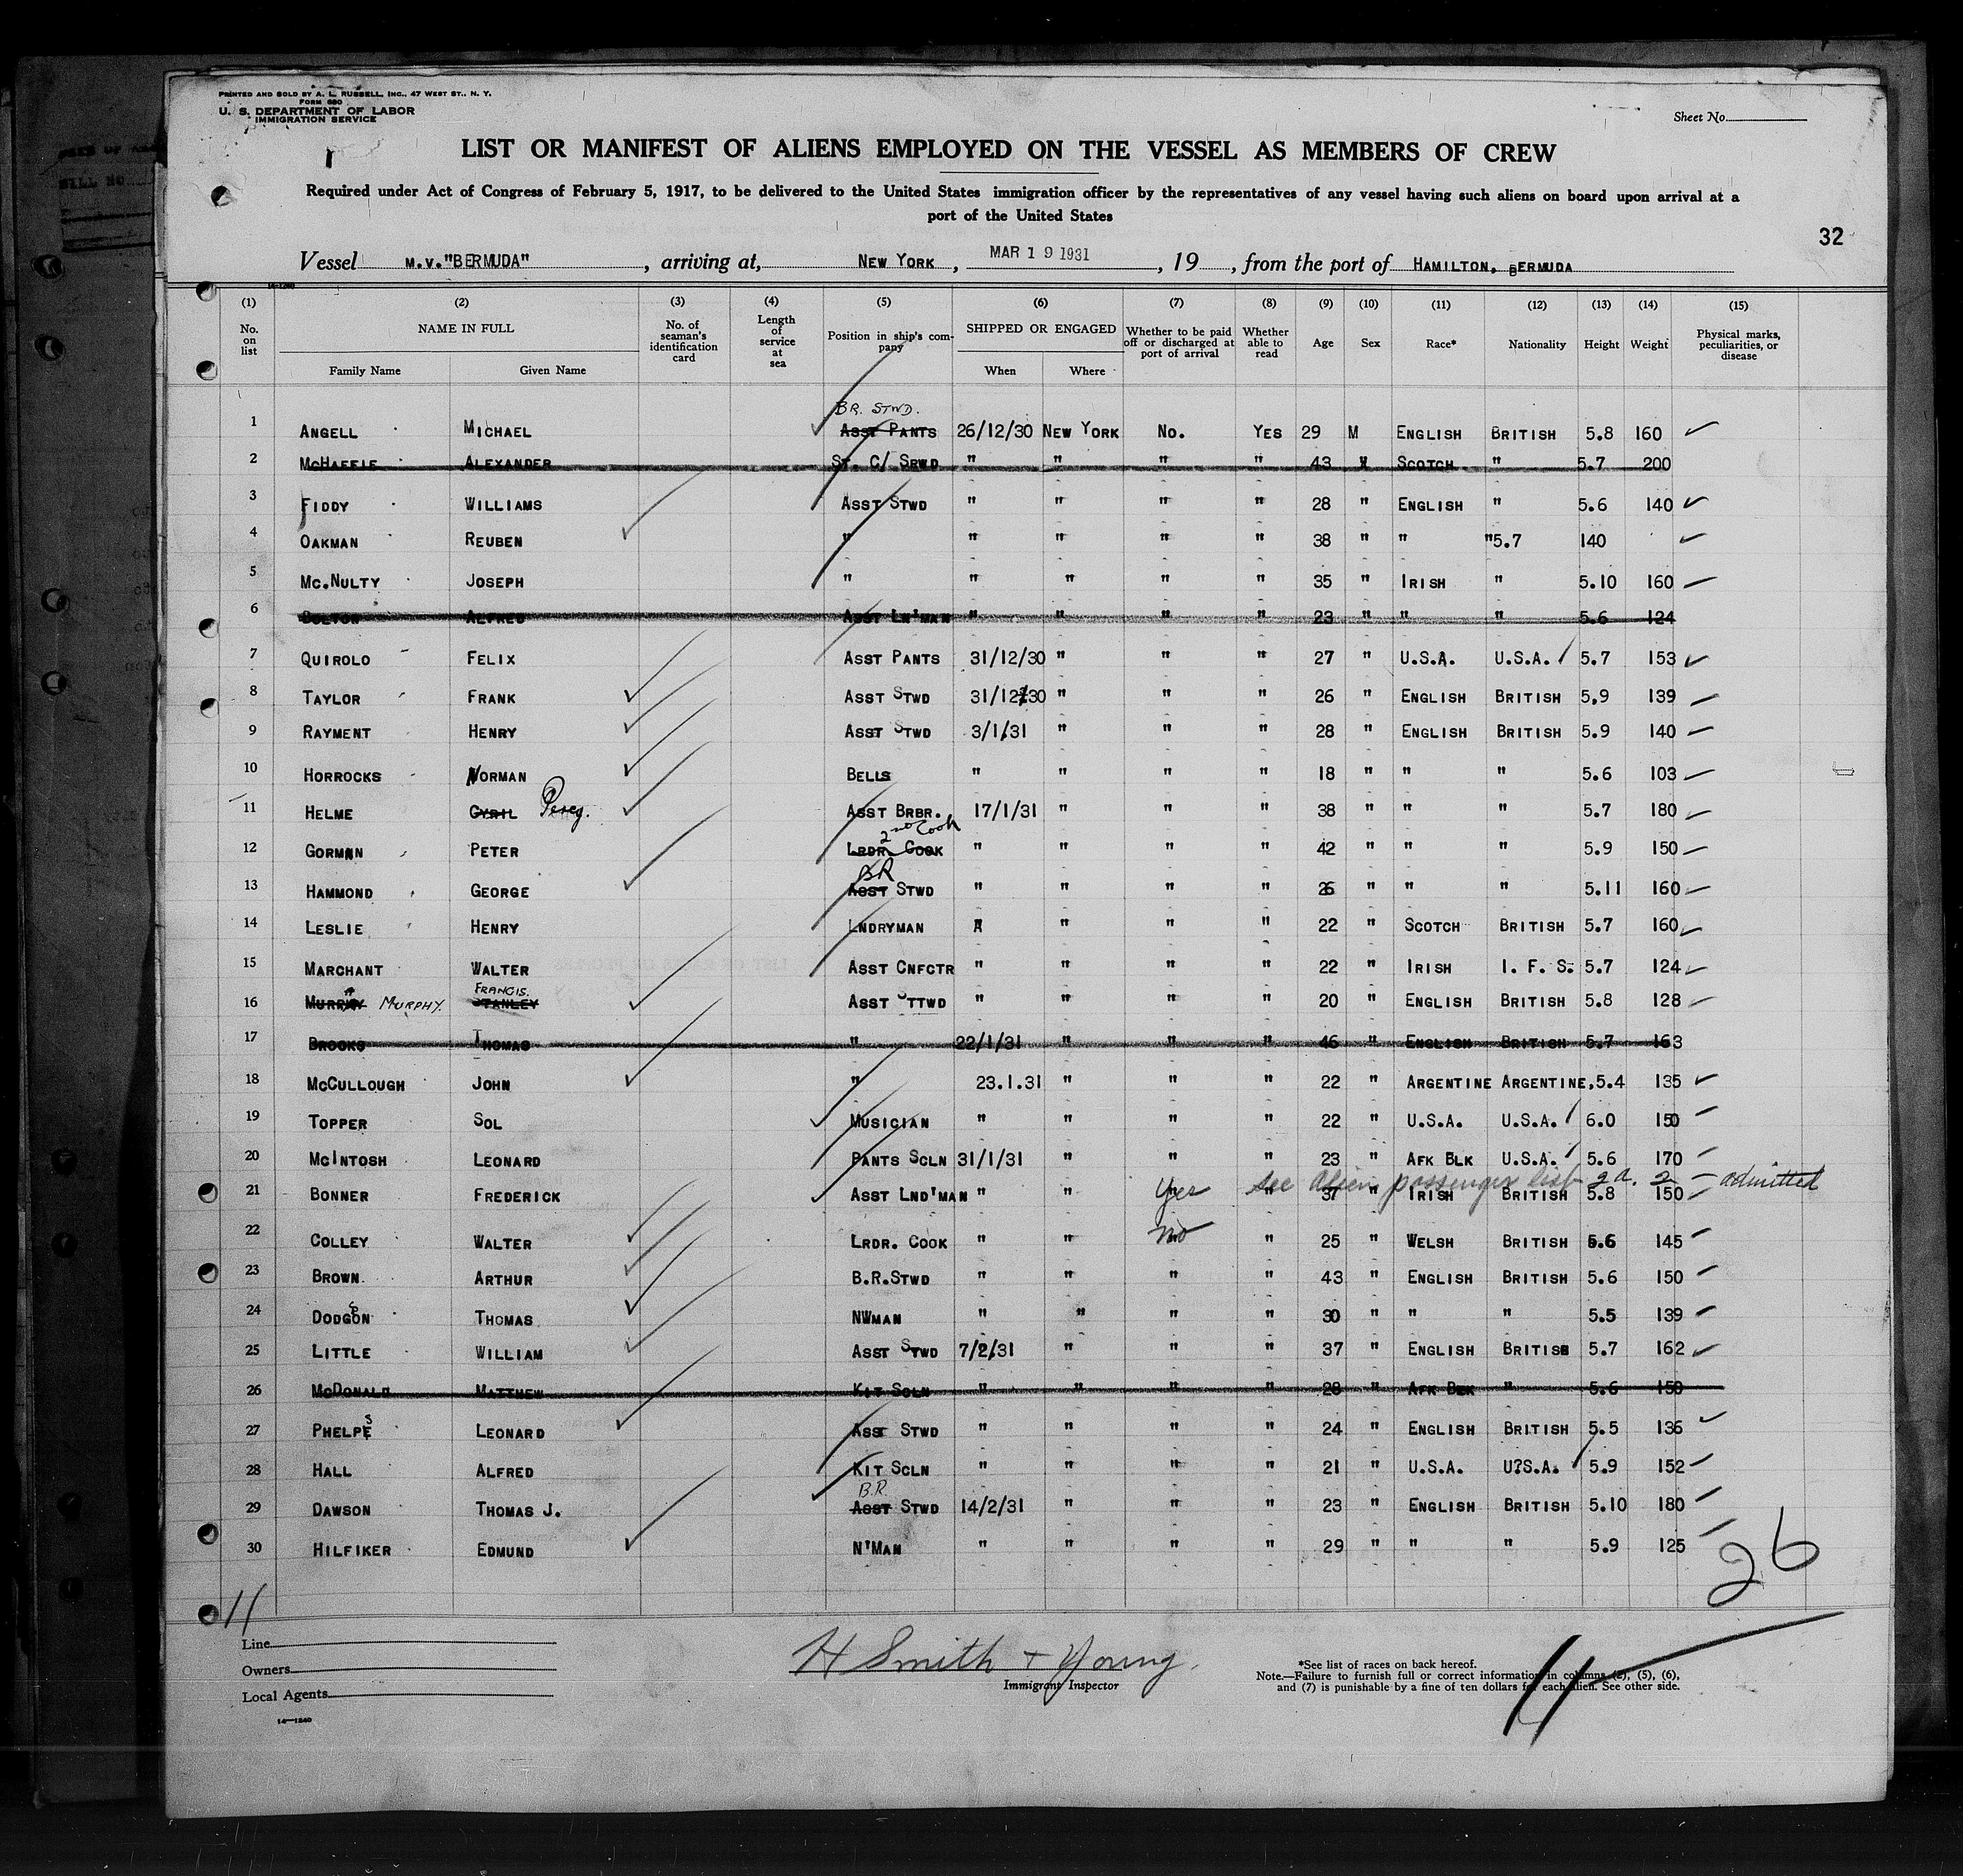 PRINTED AND SOLD BY A. L. RUSSELL, INC., 47 WEST ST., N. Y.
FORM 680
U. S. DEPARTMENT OF LABOR
IMMIGRATION SERVICE
Sheet No.
LIST OR MANIFEST OF ALIENS EMPLOYED ON THE VESSEL AS MEMBERS OF CREW
Required under Act of Congress of February 5, 1917, to be delivered to the United States immigration officer by the representatives of any vessel having such aliens on board upon arrival at a
port of the United States
32
Vessel M.V."BERMUDA" , arriving at, NEW YORK , MAR 19 1931 , 19 , from the port of HAMILTON, BERMUDA
14-1240
(1) (2) (3) (4) (5) (6) (7) (8) (9) (10) (11) (12) (13) (14) (15)
No. on list NAME IN FULL Family Name Given Name No. of seaman's identification card Length of service at sea Position in ship's company SHIPPED OR ENGAGED When Where Whether to be paid off or discharged at port of arrival Whether able to read Age Sex Race* Nationality Height Weight Physical marks, peculiarities, or disease
BR. STWD.
1 ANGELL MICHAEL ASST PANTS 26/12/30 NEW YORK NO. YES 29 M ENGLISH BRITISH 5.8 160
2 MCHAFFIE ALEXANDER ST. C/ SRWD " " " " 43 " SCOTCH " 5.7 200
3 FIDDY WILLIAMS ASST STWD " " " " 28 " ENGLISH " 5.6 140
4 OAKMAN REUBEN " " " " " 38 " " "5.7 140
5 MC.NULTY JOSEPH " " " " " 35 " IRISH " 5.10 160
6 BOLTON ALFRED ASST LN'MAN " " " " 23 " " " 5.6 124
7 QUIROLO FELIX ASST PANTS 31/12/30 " " " 27 " U.S.A. U.S.A. 5.7 153
8 TAYLOR FRANK ASST STWD 31/12/30 " " " 26 " ENGLISH BRITISH 5,9 139
9 RAYMENT HENRY ASST STWD 3/1/31 " " " 28 " ENGLISH BRITISH 5.9 140
10 HORROCKS NORMAN BELLS " " " " 18 " " " 5.6 103
11 HELME CYRIL Percy. ASST BRBR. 17/1/31 " " " 38 " " " 5.7 180
2nd Cook
12 GORMAN PETER LRDR COOK " " " " 42 " " " 5.9 150
BR
13 HAMMOND GEORGE ASST STWD " " " " 26 " " " 5.11 160
14 LESLIE HENRY LNDRYMAN " " " " 22 " SCOTCH BRITISH 5.7 160
15 MARCHANT WALTER ASST CNFCTR " " " " 22 " IRISH I. F. S. 5.7 124
FRANCIS.
16 MURRAY MURPHY. STANLEY ASST STTWD " " " " 20 " ENGLISH BRITISH 5.8 128
17 BROOKS THOMAS " 22/1/31 " " " 46 " ENGLISH BRITISH 5.7 163
18 MCCULLOUGH JOHN " 23.1.31 " " " 22 " ARGENTINE ARGENTINE, 5.4 135
19 TOPPER SOL MUSICIAN " " " " 22 " U.S.A. U.S.A. 6.0 150
20 MCINTOSH LEONARD PANTS SCLN 31/1/31 " " " 23 " AFK BLK U.S.A. 5.6 170
see alien passenger list 2 a. 2 - admitted
21 BONNER FREDERICK ASST LND'MAN " " Yes " 37 " IRISH BRITISH 5.8 150
22 COLLEY WALTER LRDR. COOK " " No " 25 " WELSH BRITISH 5.6 145
23 BROWN. ARTHUR B.R.STWD " " " " 43 " ENGLISH BRITISH 5.6 150
24 DODGSON THOMAS NWMAN " " " " 30 " " " 5.5 139
25 LITTLE WILLIAM ASST STWD 7/2/31 " " " 37 " ENGLISH BRITISH 5.7 162
26 MCDONALD MATTHEW KIT SCLN " " " " 28 " AFK BLK " 5.6 150
27 PHELPS LEONARD ASST STWD " " " " 24 " ENGLISH BRITISH 5.5 136
28 HALL ALFRED KIT SCLN " " " " 21 " U.S.A. U?S.A. 5.9 152
B.R.
29 DAWSON THOMAS J. ASST STWD 14/2/31 " " " 23 " ENGLISH BRITISH 5.10 180
30 HILFIKER EDMUND N'MAN " " " " 29 " " " 5.9 125
26
11
Line
Owners
Local Agents
14-1240
H Smith + Young.
Immigrant Inspector
*See list of races on back hereof.
Note.—Failure to furnish full or correct information in columns (2), (5), (6),
and (7) is punishable by a fine of ten dollars for each alien. See other side.
11